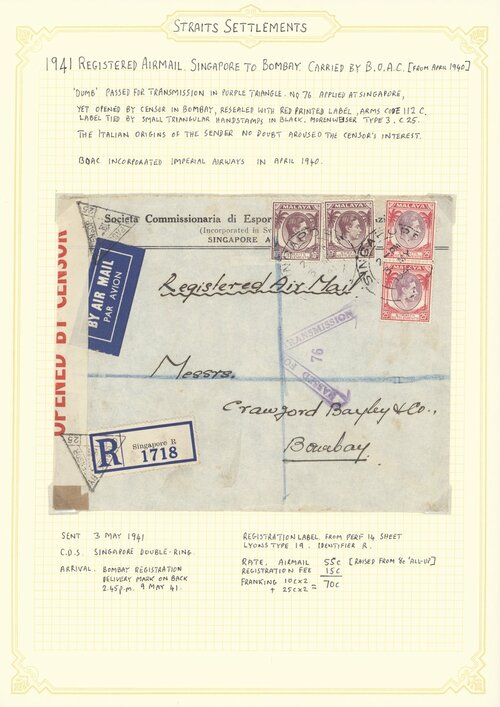 STRAITS SETTLEMENTS
1941 REGISTERED AIRMAIL SINGAPORE TO BOMBAY. CARRIED BY B.O.A.C. [FROM APRIL 1940]
'DUMB' PASSED FOR TRANSMISSION IN PURPLE TRIANGLE. NO 76 APPLIED AT SINGAPORE,
YET OPENED BY CENSOR IN BOMBAY, RESEALED WITH RED PRINTED LABEL, ARMS CODE 112 C.
LABEL TIED BY SMALL TRIANGULAR HANDSTAMPS IN BLACK. MORENWEISER TYPE 3, C 25.
THE ITALIAN ORIGINS OF THE SENDER NO DOUBT AROUSED THE CENSOR'S INTEREST.
BOAC INCORPORATED IMPERIAL AIRWAYS IN APRIL 1940.
MALAYA MALAYA MALAYA
Societa Commissionaria di Espor
(Incorporated in
SINGAPORE
MALAYA
25c 25c
OPENED BY CENSOR
BY AIR MAIL
PAR AVION
Registered Air Mail
PASSED FOR
TRANSMISSION
76
Messrs.
Crawford Bayley & Co.,
Bombay.
R
Singapore R
1718
25
25
SENT 3 MAY 1941
C.D.S. SINGAPORE DOUBLE-RING.
ARRIVAL. BOMBAY REGISTRATION
DELIVERY MARK ON BACK
2.45 P.M. 9 MAY 41.
REGISTRATION LABEL FROM PERF 14 SHEET
LYONS TYPE 19. IDENTIFIER R.
RATE, AIRMAIL 55c [RAISED FROM 40c 'ALL-UP']
REGISTRATION FEE 15c
FRANKING 10c x 2
+ 25c x 2 = 70c